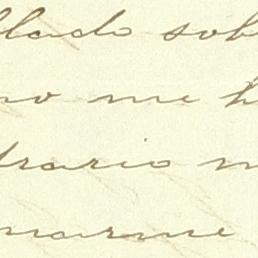 llado sob
no me h
trario m
marme